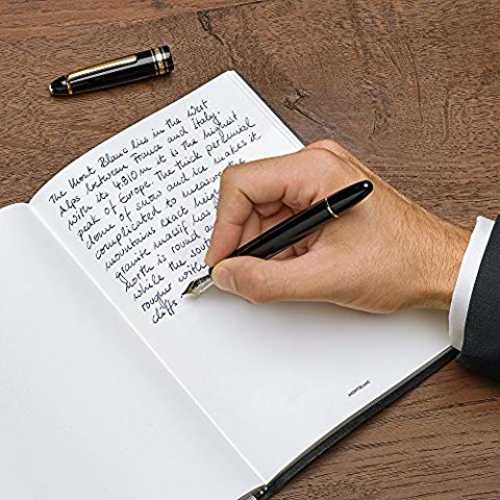 The Mont Blanc lies in the West
Alps between France and Italy.
With its 4.810 m it is the highest
peak of Europe. The thick perennial
dome of snow and ice makes it
complicated to measure the
mountains exact heigh
granite massif has
North is round a
while the sout
rough with
cliffs
MONTBLANC